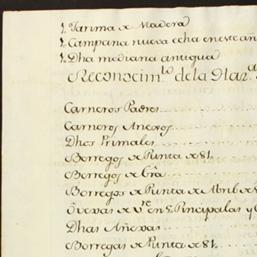 1. Tarima de Madera
1. Campana nueva echa en este an
1. Dha mediana antigua
Reconocim.to de la Haz.
Carneros Padres
Carneros Anexos
Dhos Primales
Borregos de Punta de 81.
Borregos de Cria
Borregos de Punta de Abril de
Principales y
Dhas Añexas
Borregas de Punta de 81.